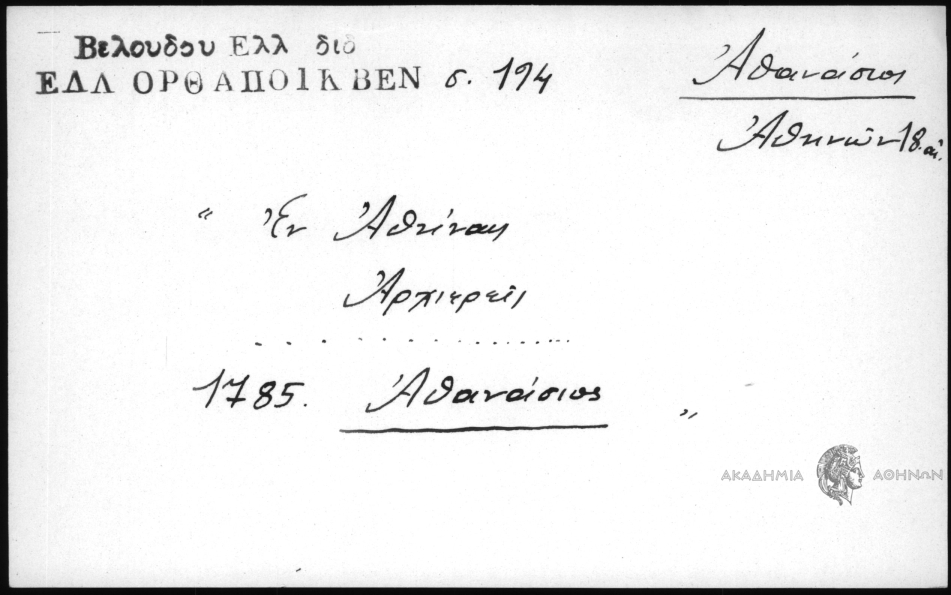 Βελουδου Ελλ διδ
ΕΛΛ ΟΡΘ ΑΠΟΙΚ ΒΕΝ σ. 194
Ἀθανάσιος
Ἀθηνῶν 18. αἰ.
“ Ἐν Ἀθήναις
Ἀρχιερεῖς
1785. Ἀθανάσιος ”
ΑΚΑΔΗΜΙΑ ΑΘΗΝΩΝ